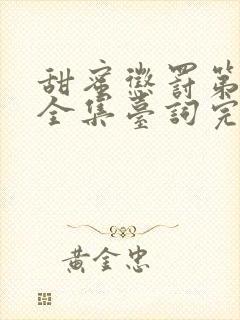 甜蜜懲罰第
全集臺詞完
黃金忠